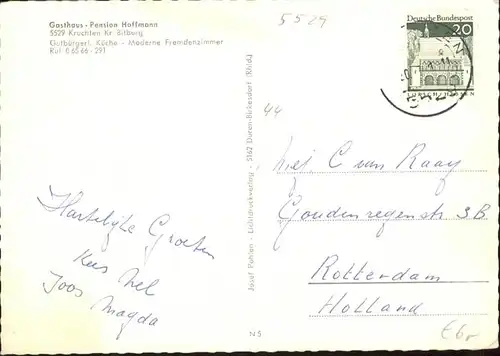 Gasthaus - Pension Hoffmann
5529 Kruchten Kr Bitburg
Gutbürgerl. Küche - Moderne Fremdenzimmer
Ruf 0 65 66 - 291
5529
Deutsche Bundespost
20
LORSCH/HESSEN
5529
44
Mej C van Raay
Goudenregenstr 3B
Rotterdam
Holland
Hartelijke Groeten
Kees Nel
Joos Magda
Josef Pohlen - Lichtdruckverlag - 5162 Düren-Birkesdorf (Rhld.)
N 5